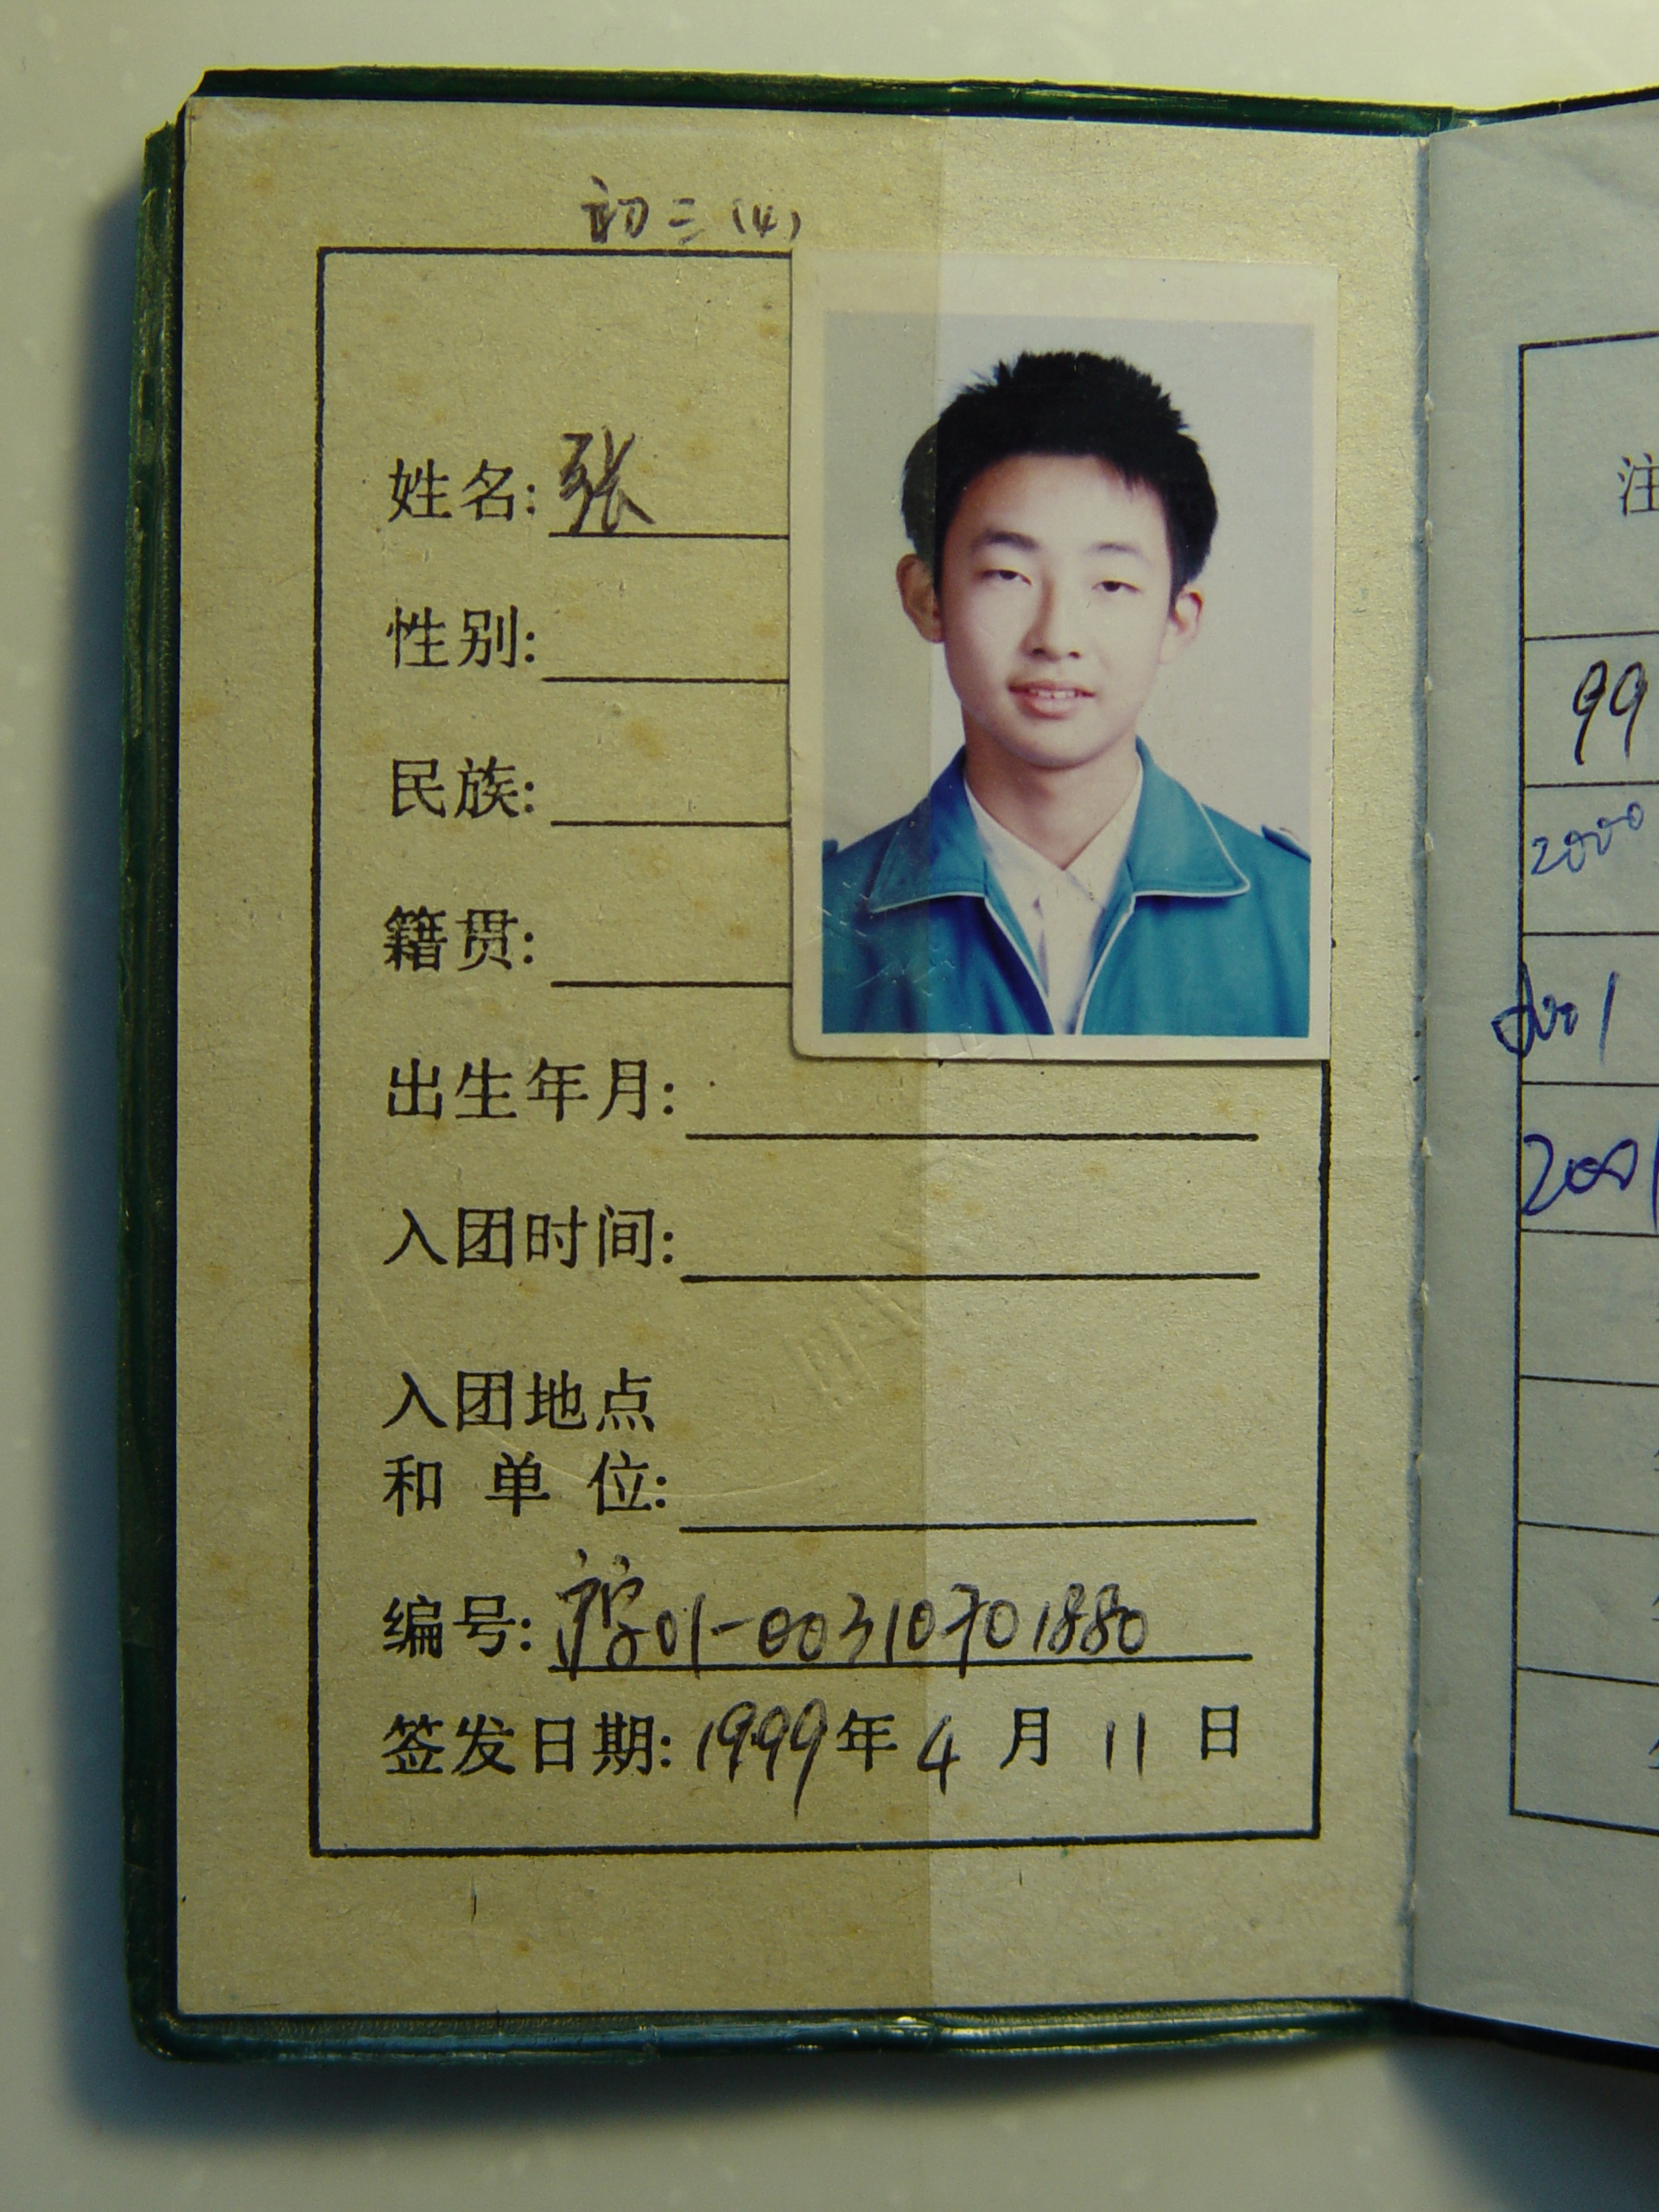 初三(4)
姓名: 张
性别:
民族:
籍贯:
出生年月:
入团时间:
入团地点
和单位:
编号: 01-00310701880
签发日期: 1999年4月11日
注
99
2000
2001
2001